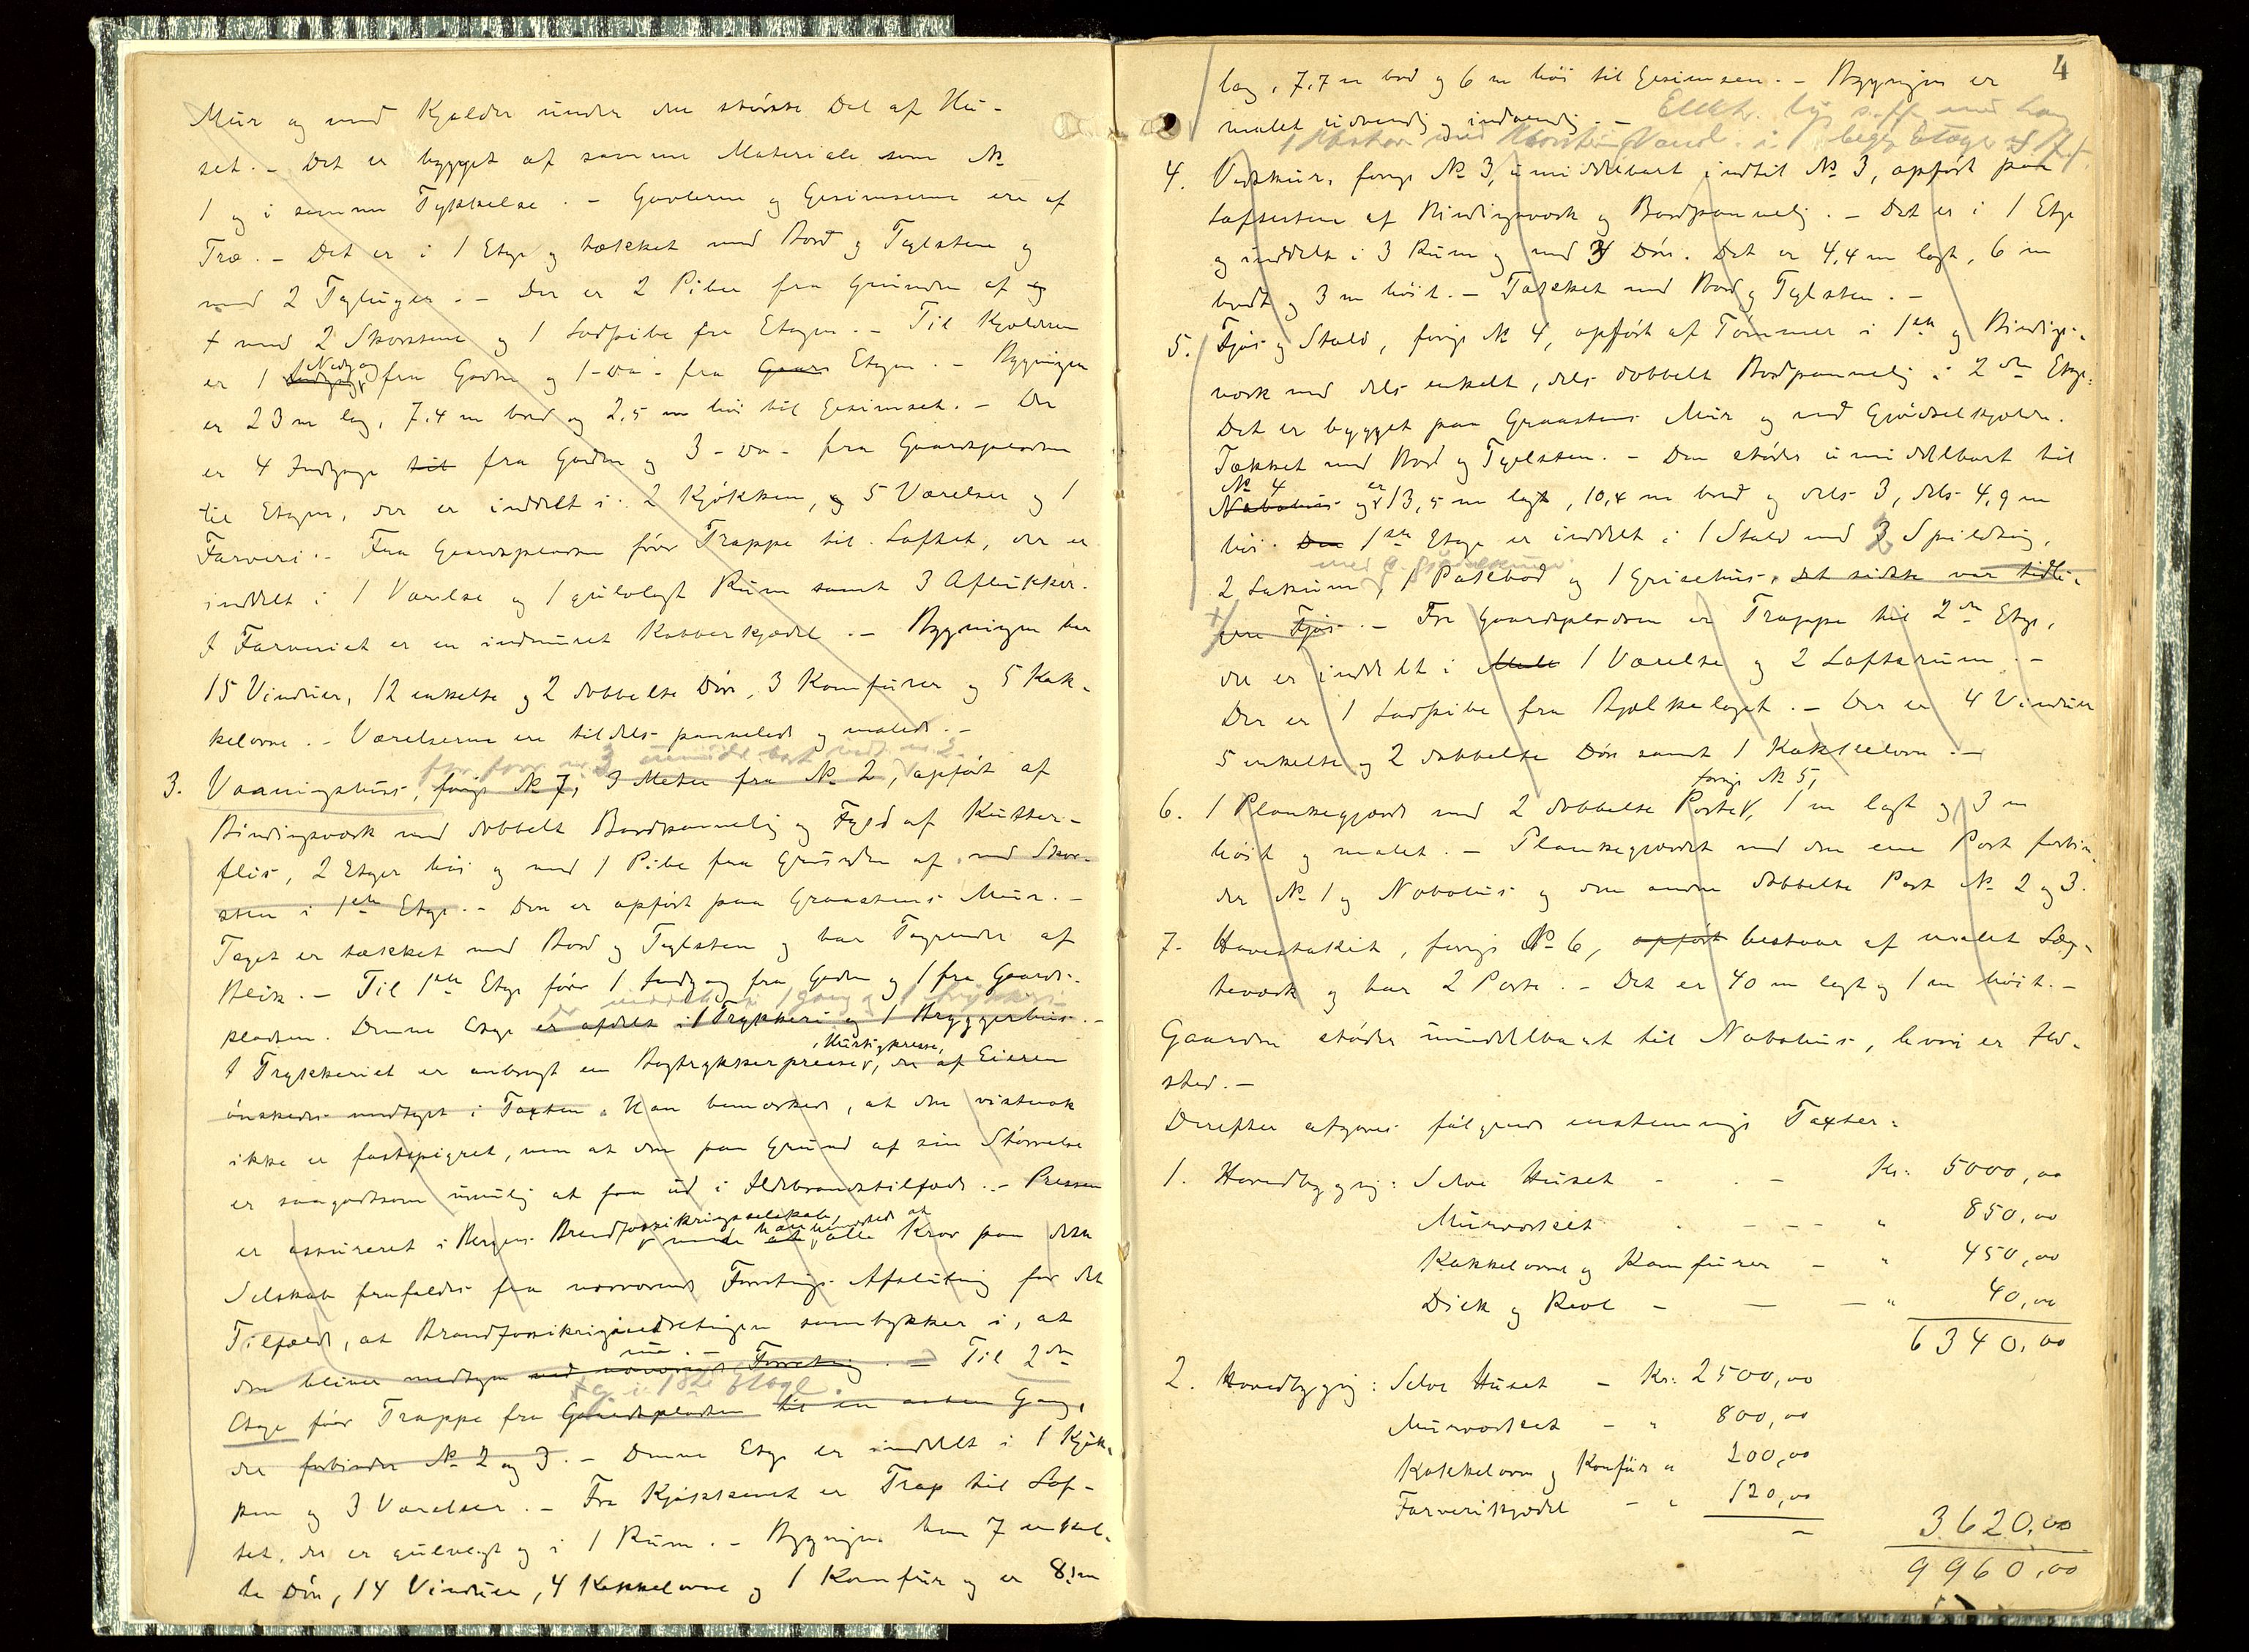 Mur og med Kjelder under den største Del af Hu-
set. - Det er bygget af samme Materiale som №
1 og i samme Tykkelse. - Gavlerne og Gesimserne ere af
Træ. - Det er i 1 Etage og tækket med Bord og Teglsten og
med 2 Tagluger. - Der er 2 Piber fra Grunden af og
+ med 2 Skorstene og 1 Lodpibe fra Etagen. - Til Kjelderen
er 1 Nedgang fra Gaden og 1 - do - fra Gaar Etagen. - Bygningen
er 23 m lang, 7,4 m bred og 2,5 m høi til Gesimset. - Der
er 4 Indgange til fra Gaden og 3 - do - fra Gaardspladsen
til Etagen, der er inddelt i: 2 Kjøkken, og 5 Værelser og 1
Farveri. - Fra Gaardspladsen fører Trappe til Loftet, der er
inddelt i 1 Værelse og 1 gulvlagt Rum samt 3 Aflukker.
I Farveriet er en indmuret Kobberkjedel. - Bygningen har
15 Vinduer, 12 enkelte og 2 dobbelte Døre, 3 Komfurer og 5 Kak-
kelovne. - Værelserne ere tildels pannelede og malede. -
3. Vaaningshus, forrige № 7, 3 Meter fra № 2, opført af
Bindingsværk med dobbelt Bordpanneling og Fyld af Kutter-
flis, 2 Etager høi og med 1 Pibe fra Grunden af med Skor-
sten i 1ste Etage. - Den er opført paa Graastens Mur. -
Taget er tækket med Bord og Teglsten og har Tagrender af
Blik. - Til 1ste Etage fører 1 Indgang fra Gaden og 1 fra Gaards-
pladsen. Denne Etage er afdelt i 1 Trykkeri og 1 Bryggerhus. -
, Hurtigpresse,
I Trykkeriet er anbragt en Bogtrykkerpresse, der af Eieren
ønskedes medtaget i Taxten. Han bemærkede, at den vistnok
ikke er fastspigret, men at den paa Grund af sin Størrelse
er saagodtsom umulig at faa ud i Ildebrandstilfælde. - Pressen
er assureret i Bergens Brandforsikringsselskab, men han bemærkede at alle Krav paa dette
Selskab frafaldes fra nærværende Forretnings Afslutning for det
Tilfælde, at Brandforsikringsindretningen samtykker i, at
den bliver medtagen ved nærværende Forretning nu. - Til 2den
og i 1ste Etage.
Etage fører Trappe fra Gaardspladsen til en aaben Gang,
der forbinder № 2 og 3. - Denne Etage er inddelt i 1 Kjøk-
ken og 3 Værelser. - Fra Kjøkkenet er Trap til Lof-
tet, der er gulvlagt og i 1 Rum. - Bygningen har 7 enkel-
te Døre, 14 Vinduer, 4 Kakkelovne og 1 Komfur og er 8,1 m
4
lang, 7,7 m bred og 6 m høi til Gesimsen. - Bygningen er
malet udvendig og indvendig. -
Elektr. lys
4. Vedskur, forrige № 3, umiddelbart indtil № 3, opført paa
Loftsten af Bindingsværk og Bordpanneling. - Det er i 1 Etage
og inddelt i 3 Rum og med 3 Døre. Det er 4,4 m langt, 6 m
bredt og 3 m høit. - Tækket med Bord og Teglsten. -
5. Fjøs og Stald, forrige № 4, opført af Tømmer i 1ste og Bindings-
værk med dels enkelt, dels dobbelt Bordpanneling i 2den Etage.
Det er bygget paa Graastens Mur og med Gjødselkjelder.
Tækket med Bord og Teglsten. - Den støder umiddelbart til
№ 4
Nabohus og er 13,5 m langt, 10,4 m bred og dels 3, dels 4,9 m
høi. Den 1ste Etage er inddelt i 1 Stald med 3 Spildtoug,
2 Lokum, 1 Pakbod og 1 Grisehus, det sidste var tidli-
gere Fjøs. - Fra Gaardspladsen er Trappe til 2den Etage,
der er inddelt i 1 Værelse og 2 Loftsrum. -
Der er 1 Lodpibe fra Bjelkelaget. - Der er 4 Vinduer
5 enkelte og 2 dobbelte Døre samt 1 Kakkelovn. -
forrige № 5,
6. 1 Plankegjærde med 2 dobbelte Porte, 1 m langt og 3 m
høit og malet. - Plankegjærdet med den ene Port forbin-
der № 1 og Nabohus og den anden dobbelte Port № 2 og 3.
7. Havestakit, forrige № 6, opført bestaar af malet Læg-
teværk og har 2 Porte. - Det er 40 m langt og 1 m høit. -
Gaarden støder umiddelbart til Nabohus, hvori er Ild-
sted. -
Derefter afgaves følgende enstemmige Taxter:
1. Hovedbygning: Selve Huset - - Kr: 5000,00
Murværket - - - " 850,00
Kakkelovne og Komfurer - " 450,00
Disk og Reol - - - " 40,00
6340,00
2. Hovedbygning: Selve Huset - Kr: 2500,00
Murværket - " 800,00
Kakkelovne og Komfur " 200,00
Farverikjedel - " 120,00
3620,00
9960,00